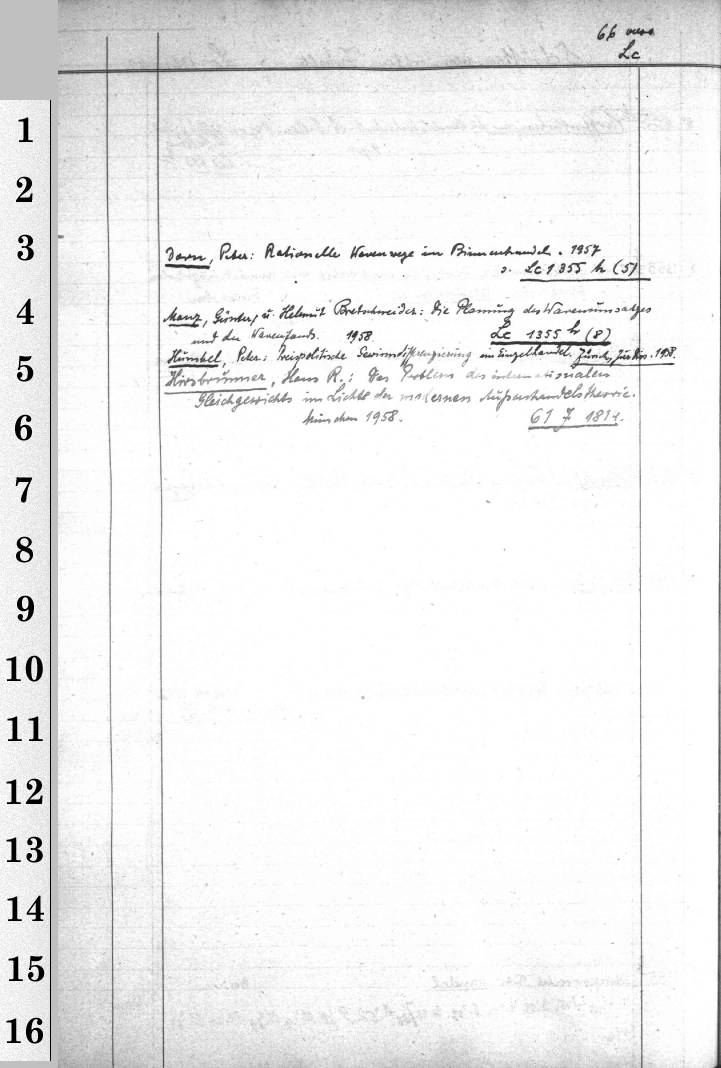 66 verso
Lc
1
2
3
Dorn, Peter: Rationelle Warenwege im Binnenhandel. 1957
s. Lc 1355 h (5)
4
Manz, Günter, u. Helmut Bretschneider: Die Planung des Warenumsatzes
und der Warenfonds. 1958. Lc 1355 h (8)
5
Humbel, Peter: Preispolitische Gewinndifferenzierung im Einzelhandel. Zürich, 1958.
Hirsbrunner, Hans R.: Das Problem des internationalen
Gleichgewichts im Lichte der modernen Außenhandelstheorie.
6
München 1958. 61 7 1814.
7
8
9
10
11
12
13
14
15
16